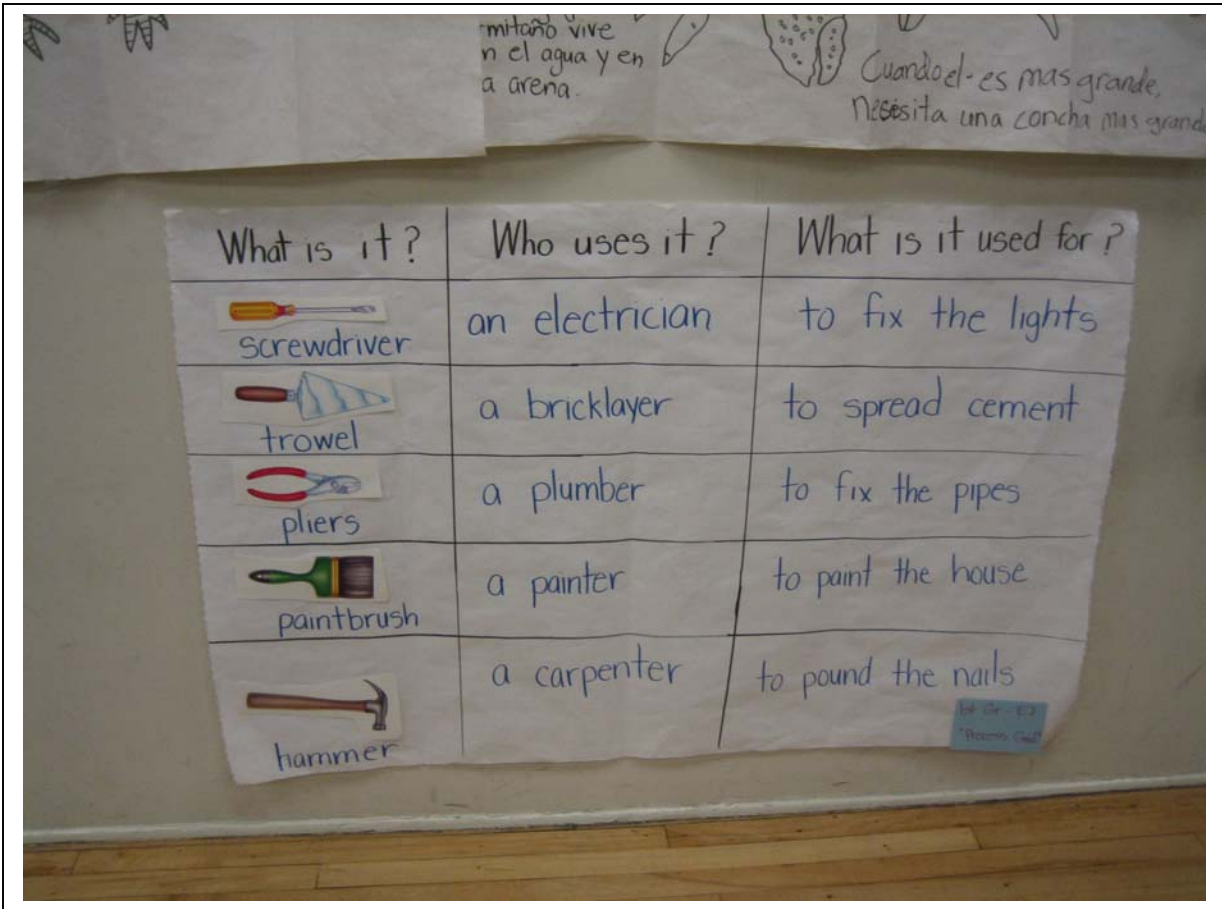 mitaño vive
n el agua y en
a arena.
Cuando el - es mas grande,
necesita una concha mas grand
What is it? Who uses it? What is it used for?
screwdriver an electrician to fix the lights
trowel a bricklayer to spread cement
pliers a plumber to fix the pipes
paintbrush a painter to paint the house
hammer a carpenter to pound the nails
"Process